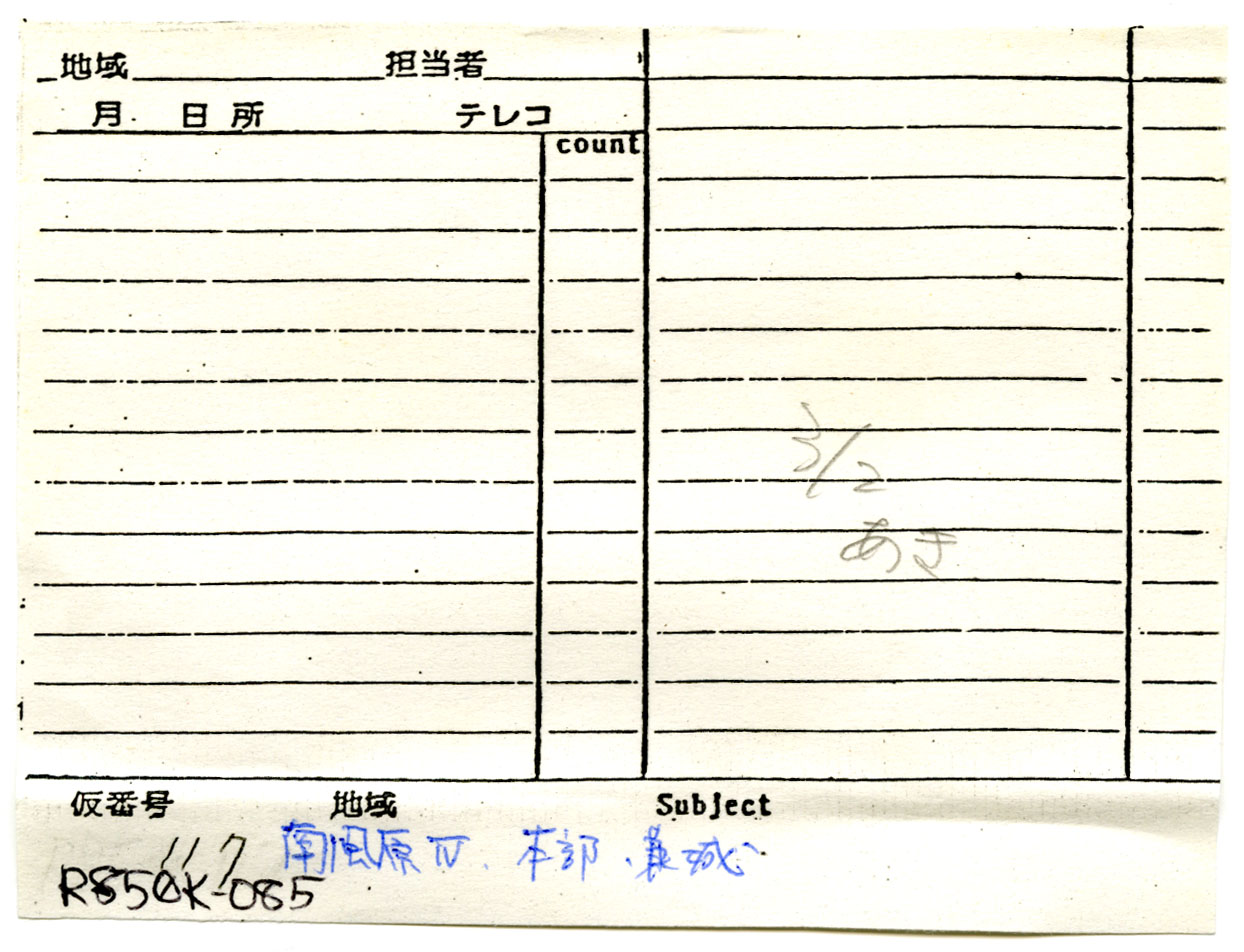 地域 担当者
月 日 所 テレコ
count
3/2
あき
仮番号 地域 Subject
117 南風原Ⅳ、本部、兼城
R85OK-085